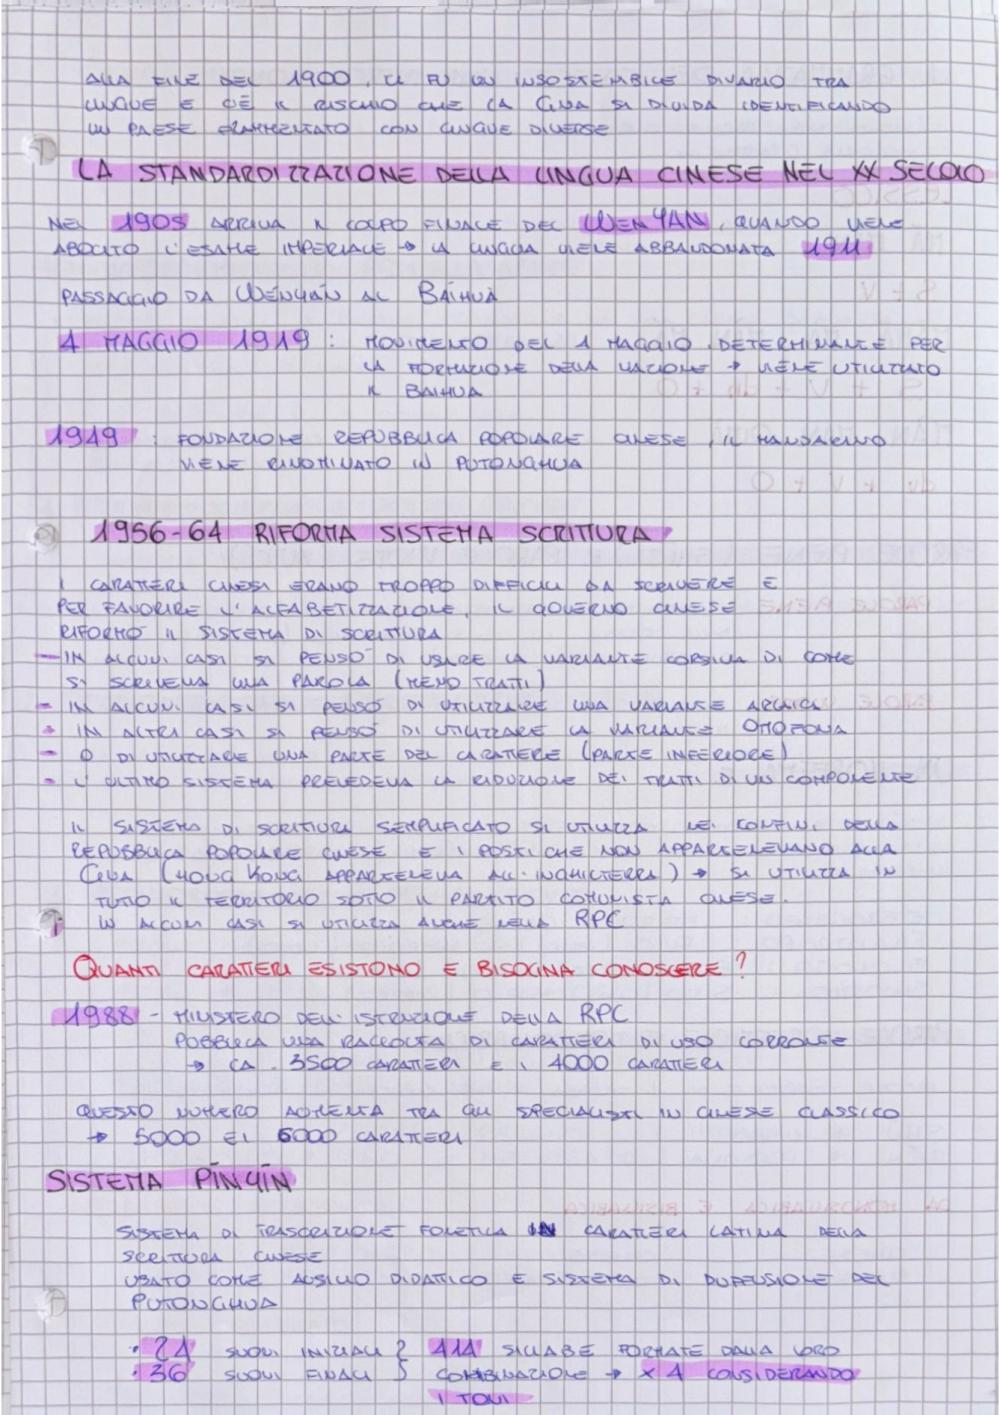 ALLA FINE DEL 1900, CI FU UN INSOSTENIBILE DIVARIO TRA
LINGUE E C'È IL RISCHIO CHE LA CINA SI DIVIDA IDENTIFICANDO
UN PAESE FRAMMENTATO CON LINGUE DIVERSE
LA STANDARDIZZAZIONE DELLA LINGUA CINESE NEL XX SECOLO
NEL 1905 ARRIVA IL COLPO FINALE DEL WENYAN, QUANDO VIENE
ABOLITO L'ESAME IMPERIALE → LA LINGUA VIENE ABBANDONATA 1911
PASSAGGIO DA WÉNYÁN AL BÁIHUÀ
4 MAGGIO 1919: MOVIMENTO DEL 4 MAGGIO, DETERMINANTE PER
LA FORMAZIONE DELLA NAZIONE → VIENE UTILIZZATO
IL BAIHUA
1949: FONDAZIONE REPUBBLICA POPOLARE CINESE, IL MANDARINO
VIENE RINOMINATO IN PUTONGHUA
1956-64 RIFORMA SISTEMA SCRITTURA
I CARATTERI CINESI ERANO TROPPO DIFFICILI DA SCRIVERE E
PER FAVORIRE L'ALFABETIZZAZIONE, IL GOVERNO CINESE
RIFORMÒ IL SISTEMA DI SCRITTURA
- IN ALCUNI CASI SI PENSÒ DI USARE LA VARIANTE CORSIVA DI COME
SI SCRIVEVA UNA PAROLA (MENO TRATTI)
- IN ALCUNI CASI SI PENSÒ DI UTILIZZARE UNA VARIANTE ARCAICA
- IN ALTRI CASI SI PENSÒ DI UTILIZZARE LA VARIANTE OMOFONA
- O DI UTILIZZARE UNA PARTE DEL CARATTERE (PARTE INFERIORE)
- L'ULTIMO SISTEMA PREVEDEVA LA RIDUZIONE DEI TRATTI DI UN COMPONENTE
IL SISTEMA DI SCRITTURA SEMPLIFICATO SI UTILIZZA NEI CONFINI DELLA
REPUBBLICA POPOLARE CINESE E I POSTI CHE NON APPARTENEVANO ALLA
CINA (HONG KONG APPARTENEVA ALL'INGHILTERRA) → SI UTILIZZA IN
TUTTO IL TERRITORIO SOTTO IL PARTITO COMUNISTA CINESE.
IN ALCUNI CASI SI UTILIZZA ANCHE NELLA RPC
QUANTI CARATTERI ESISTONO E BISOGNA CONOSCERE?
1988 - MINISTERO DELL'ISTRUZIONE DELLA RPC
PUBBLICA UNA RACCOLTA DI CARATTERI DI USO CORRENTE
→ CA. 3500 CARATTERI E I 4000 CARATTERI
QUESTO NUMERO AUMENTA TRA GLI SPECIALISTI IN CINESE CLASSICO
→ 5000 E I 6000 CARATTERI
SISTEMA PĪNYĪN
SISTEMA DI TRASCRIZIONE FONETICA IN CARATTERI LATINA DELLA
SCRITTURA CINESE
USATO COME AUSILIO DIDATTICO E SISTEMA DI DIFFUSIONE DEL
PUTONGHUA
· 21 SUONI INIZIALI } 414 SILLABE FORMATE DALLA LORO
· 36 SUONI FINALI } COMBINAZIONE → X 4 CONSIDERANDO
I TONI